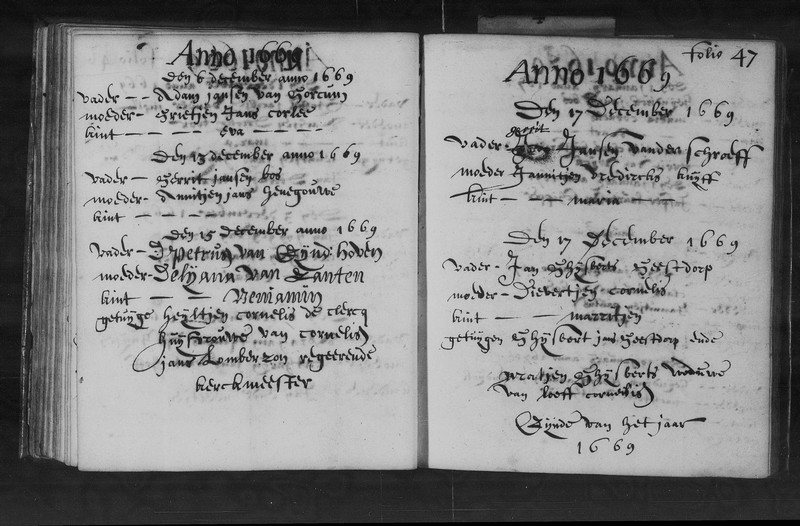 Anno 1669
Den 6 december anno 1669
vader - Adam jansen van Gorcum
moeder - Grietjen Jans corlee
kint - - eva - - -
Den 13 december anno 1669
vader - Gerrit jansen bos
moeder - Annitjen jans henegouwe
kint - - - -
Den 15 december anno 1669
vader - D Petrus van Eynd hoven
moeder - Delyana van Santen
kint - - Beniamin
getuyge heyltjen cornelis de clercq
huysvrouwe van cornelis
jans Lomberzon regeerende
kerckmeester
folio 47
Anno 1669
Den 17 December 1669
gerrit
vader - Jansen vander schroeff
moeder Jannitjen vredircks kuyff
kint - - maria - -
Den 17 December 1669
vader - Jan Ghysberts Seestdorp
moeder - Dievertjen cornelis
kint - - marritjen
getuygen Ghysbert jans Seestdorp ende
Ghysberts weduwe
van leeff cornelis
Eynde van het jaar
1669